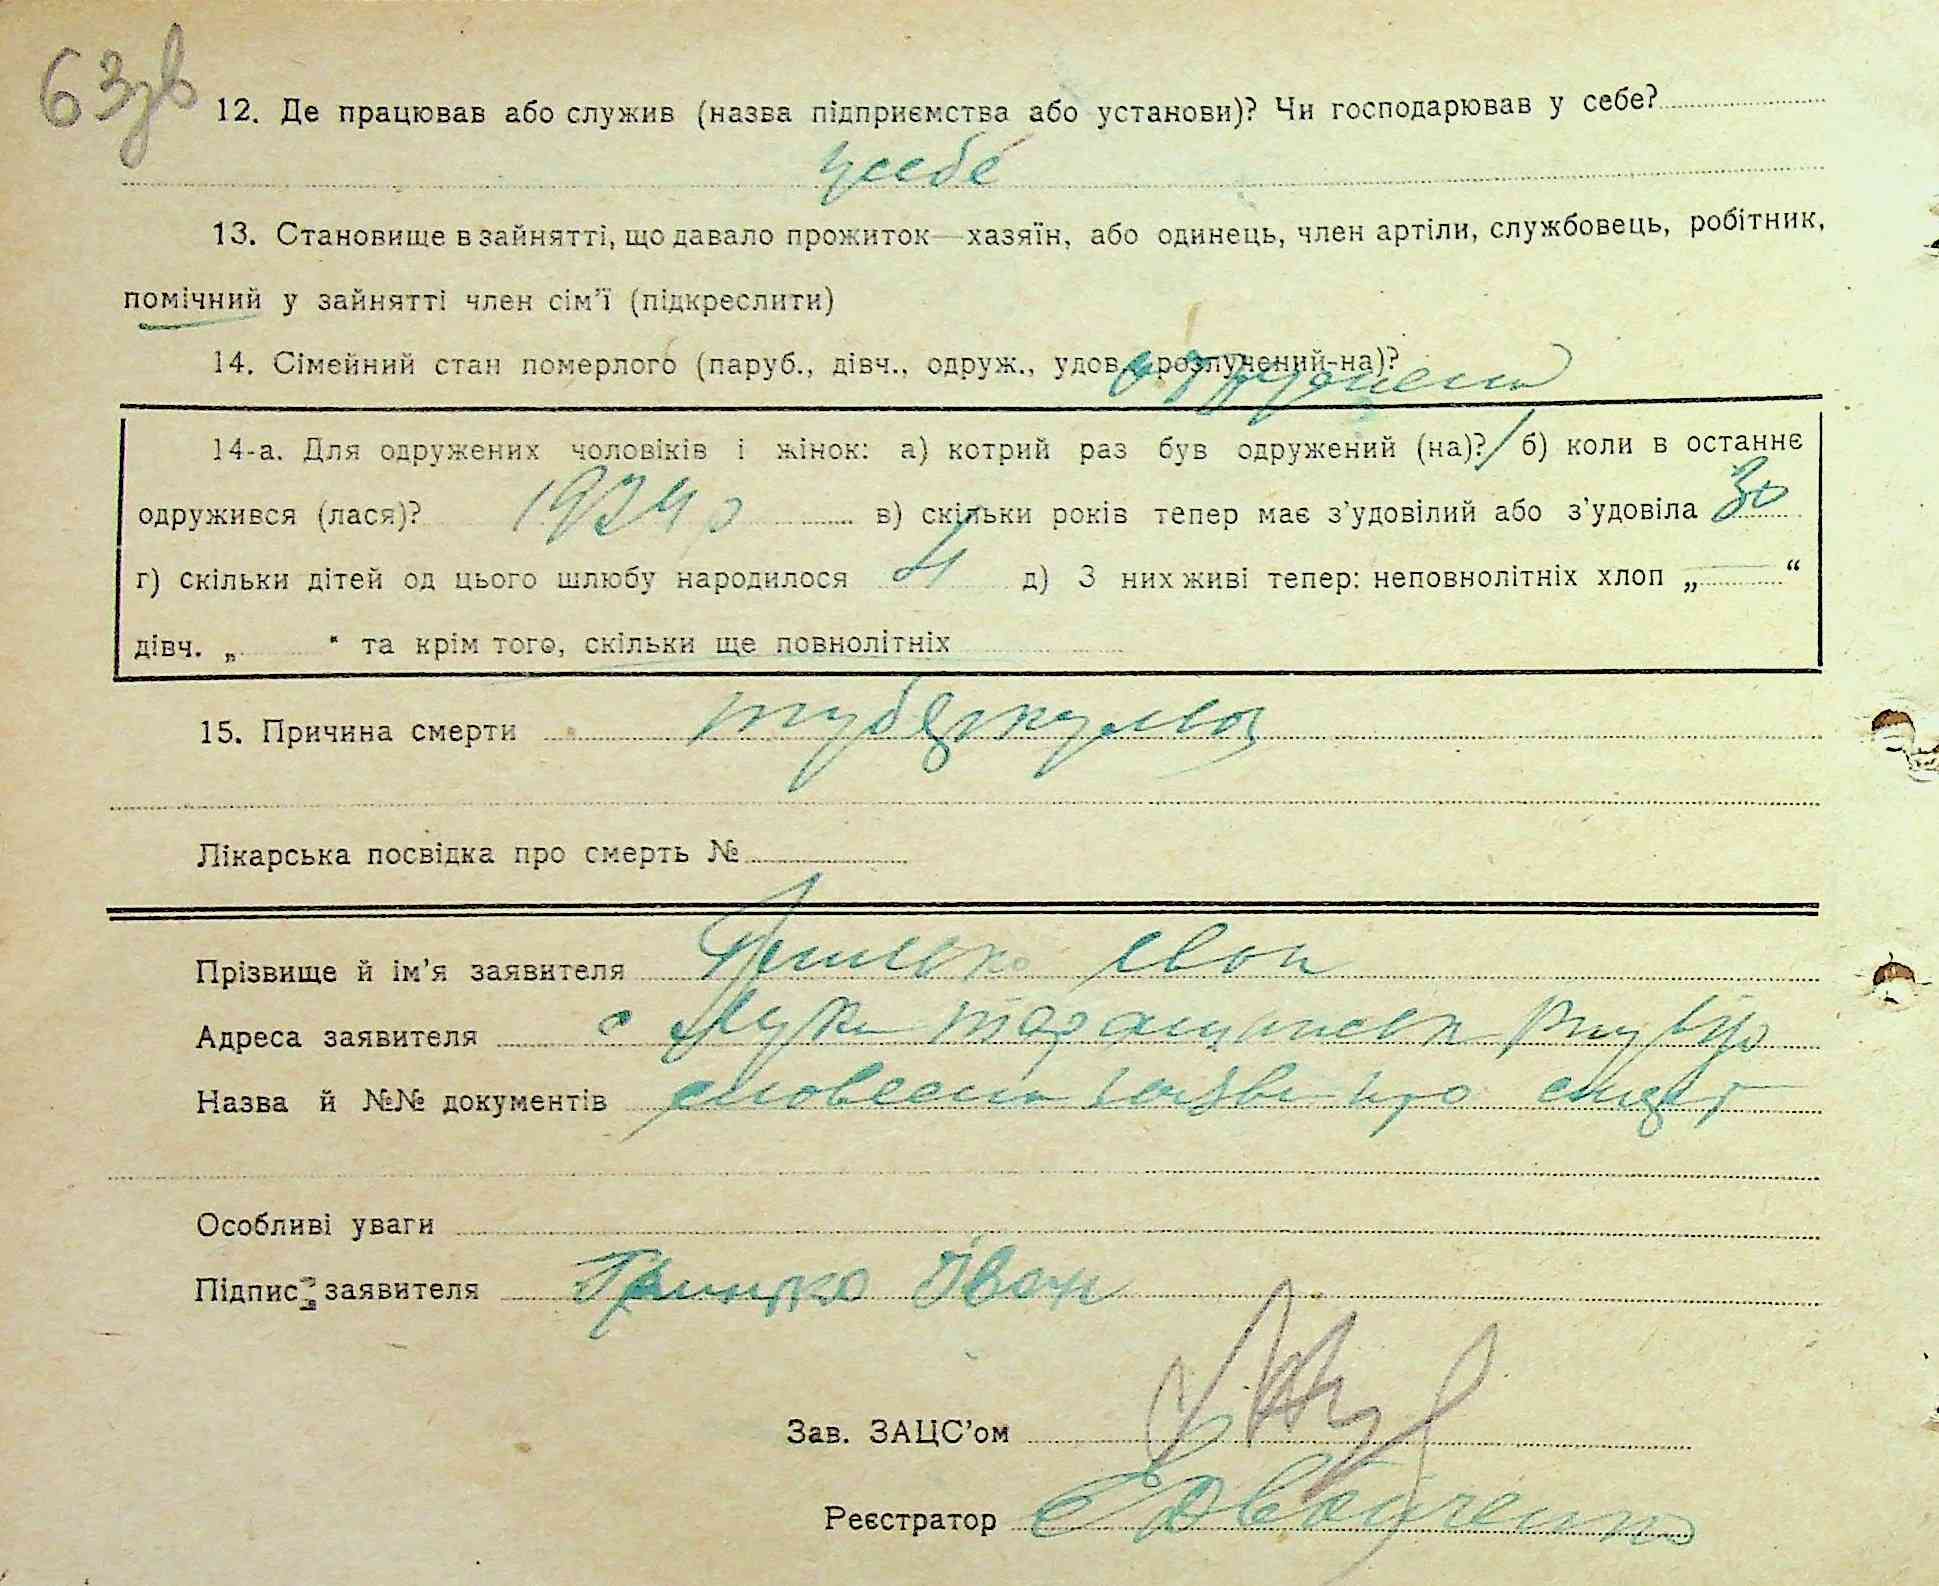 63зв
12. Де працював або служив (назва підприємства або установи)? Чи господарював у себе?
усебе
13. Становище в зайнятті, що давало прожиток—хазяїн, або одинець, член артіли, службовець, робітник,
помічний у зайнятті член сім'ї (підкреслити)
14. Сімейний стан померлого (паруб., дівч., одруж., удов., розлучений-на)?
14-а. Для одружених чоловіків і жінок: а) котрий раз був одружений (на)? 1 б) коли в останнє
одружився (лася)? 1924 р в) скільки років тепер має з'удовілий або з'удовіла 30
г) скільки дітей од цього шлюбу народилося 4 д) З них живі тепер: неповнолітніх хлоп „ — “
дівч. „ “ та крім того, скільки ще повнолітніх
15. Причина смерти туберкульоз
Лікарська посвідка про смерть №
Прізвище й ім'я заявителя Гришко Іван
Адреса заявителя с Лука
Назва й №№ документів словесна заява про смерт
Особливі уваги
Підпис заявителя Гришко Іван
Зав. ЗАЦС'ом
Реєстратор